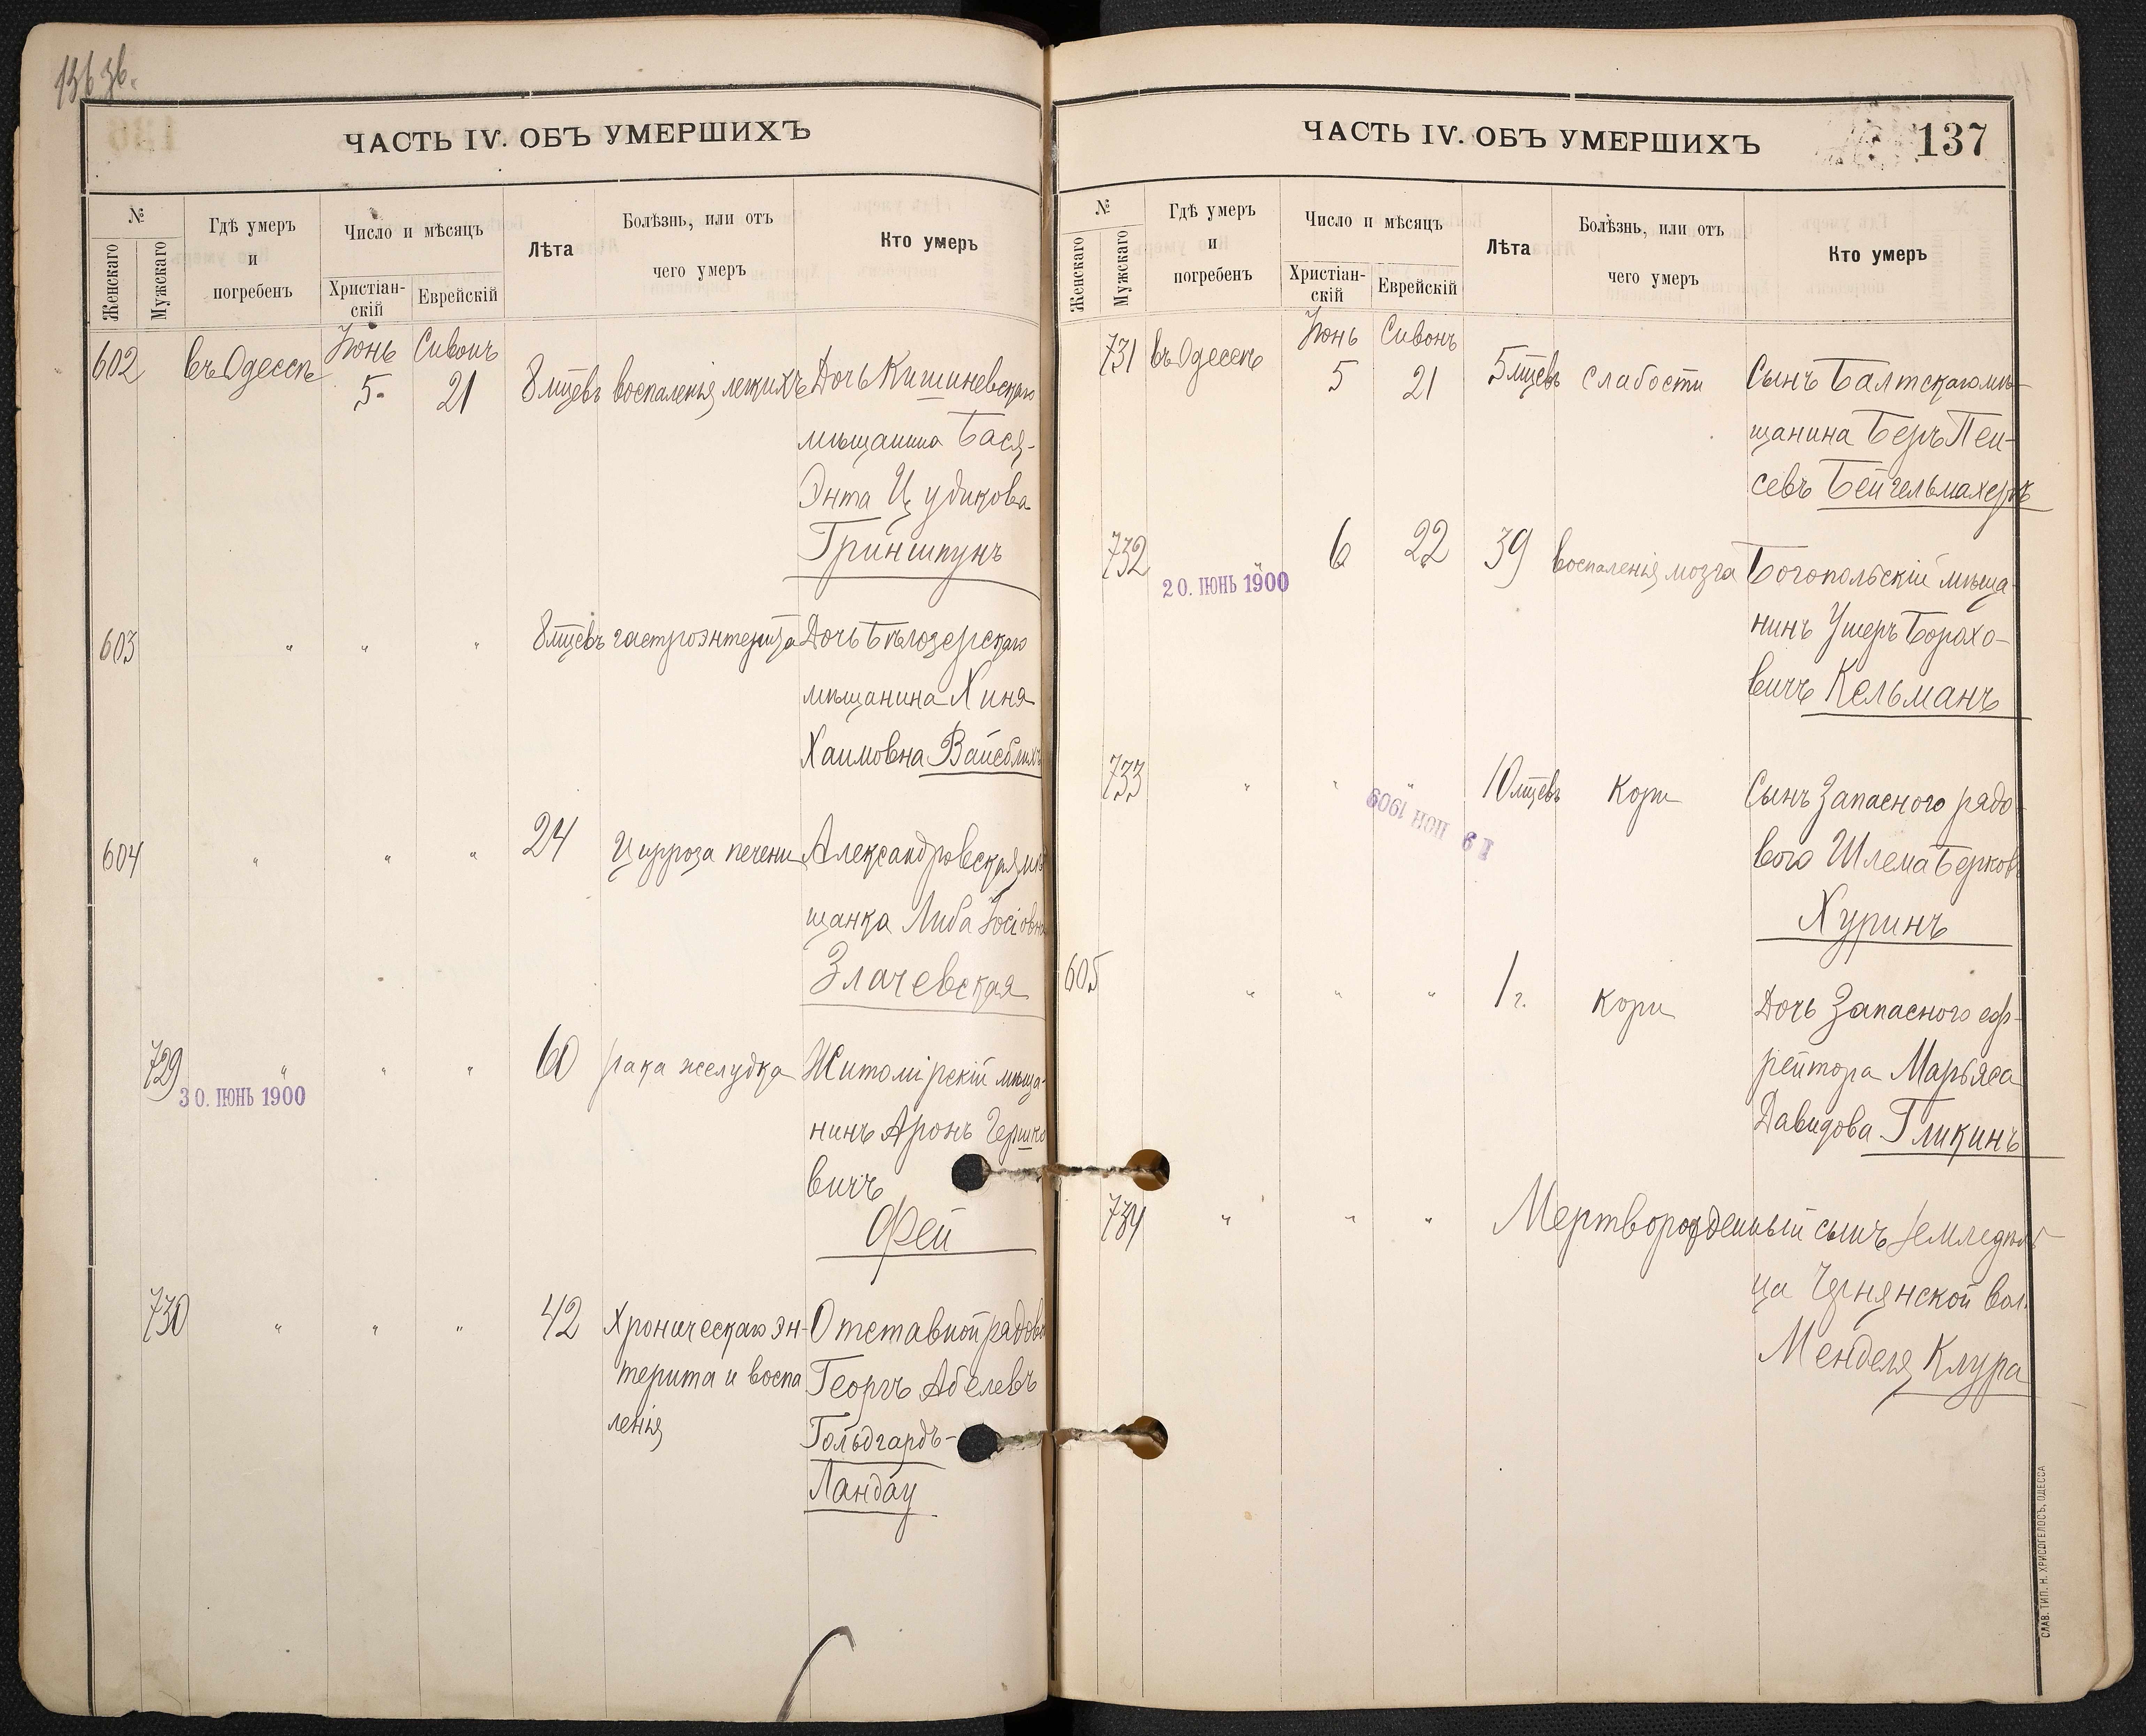 136 зв.
ЧАСТЬ IV. ОБЪ УМЕРШИХЪ
№
Женскаго
Мужскаго
Гдѣ умеръ
и
погребенъ
Число и мѣсяцъ
Христіан-
скій
Еврейскій
Лѣта
Болѣзнь, или отъ
чего умеръ
Кто умеръ
Іюнь Сивонъ
602 въ Одессѣ 5 21 8 мцевъ воспаленія легкихъ Дочь Кишиневскаго
мѣщанина Бася-
Энта Цудикова
Гриншпунъ
603 " " " 8 мцевъ гастроэнтерита Дочь Бѣлозерскаго
мѣщанина Хиня
Хаимовна Вайсблихъ
604 " " " 24 Цирроза печени Александровская мѣ
щанка Либа Іосіовна
Злачевская
729 " " " 60 рака желудка Житомірскій мѣща-
30. ІЮНЬ 1900
нинъ Аронъ Гершко
вичъ
Фей
730 " " " 42 Хроническаго эн- Отставной рядовой
терита и воспа Георгъ Абелевъ
ленія Гольдгардъ-
Ландау
ЧАСТЬ IV. ОБЪ УМЕРШИХЪ
137
№
Женскаго
Мужскаго
Гдѣ умеръ
и
погребенъ
Число и мѣсяцъ
Христіан-
скій
Еврейскій
Лѣта
Болѣзнь, или отъ
чего умеръ
Кто умеръ
Іюнь Сивонъ
731 въ Одессѣ 5 21 5 мцевъ Слабости Сынъ Балтскаго мѣ-
щанина Беръ Пей-
севъ Бейгельмахеръ
732 " 6 22 39 воспаленія мозга Богопольскій мѣща-
20. ІЮНЬ 1900
нинъ Ушеръ Борахо-
вичъ Кельманъ
733 " " " 10 мцевъ Кори Сынъ Запаснаго рядо-
19 ІЮН 1909
вого Шлема Берковъ
Хуринъ
605 " " " 1 г. Кори Дочь Запасного еф-
рейтора Марьяса
Давидова Гликинъ
734 " " " Мертворожденный сынъ Земледѣль
ца Чернянской вол.
Менделя Клура
СЛАВ. ТИП. Н. ХРИСОГЕЛОСЪ, ОДЕССА